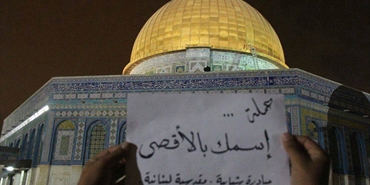 حملة...
إسمك بالأقصى
مبادرة شبابية - مقدسية لبنانية